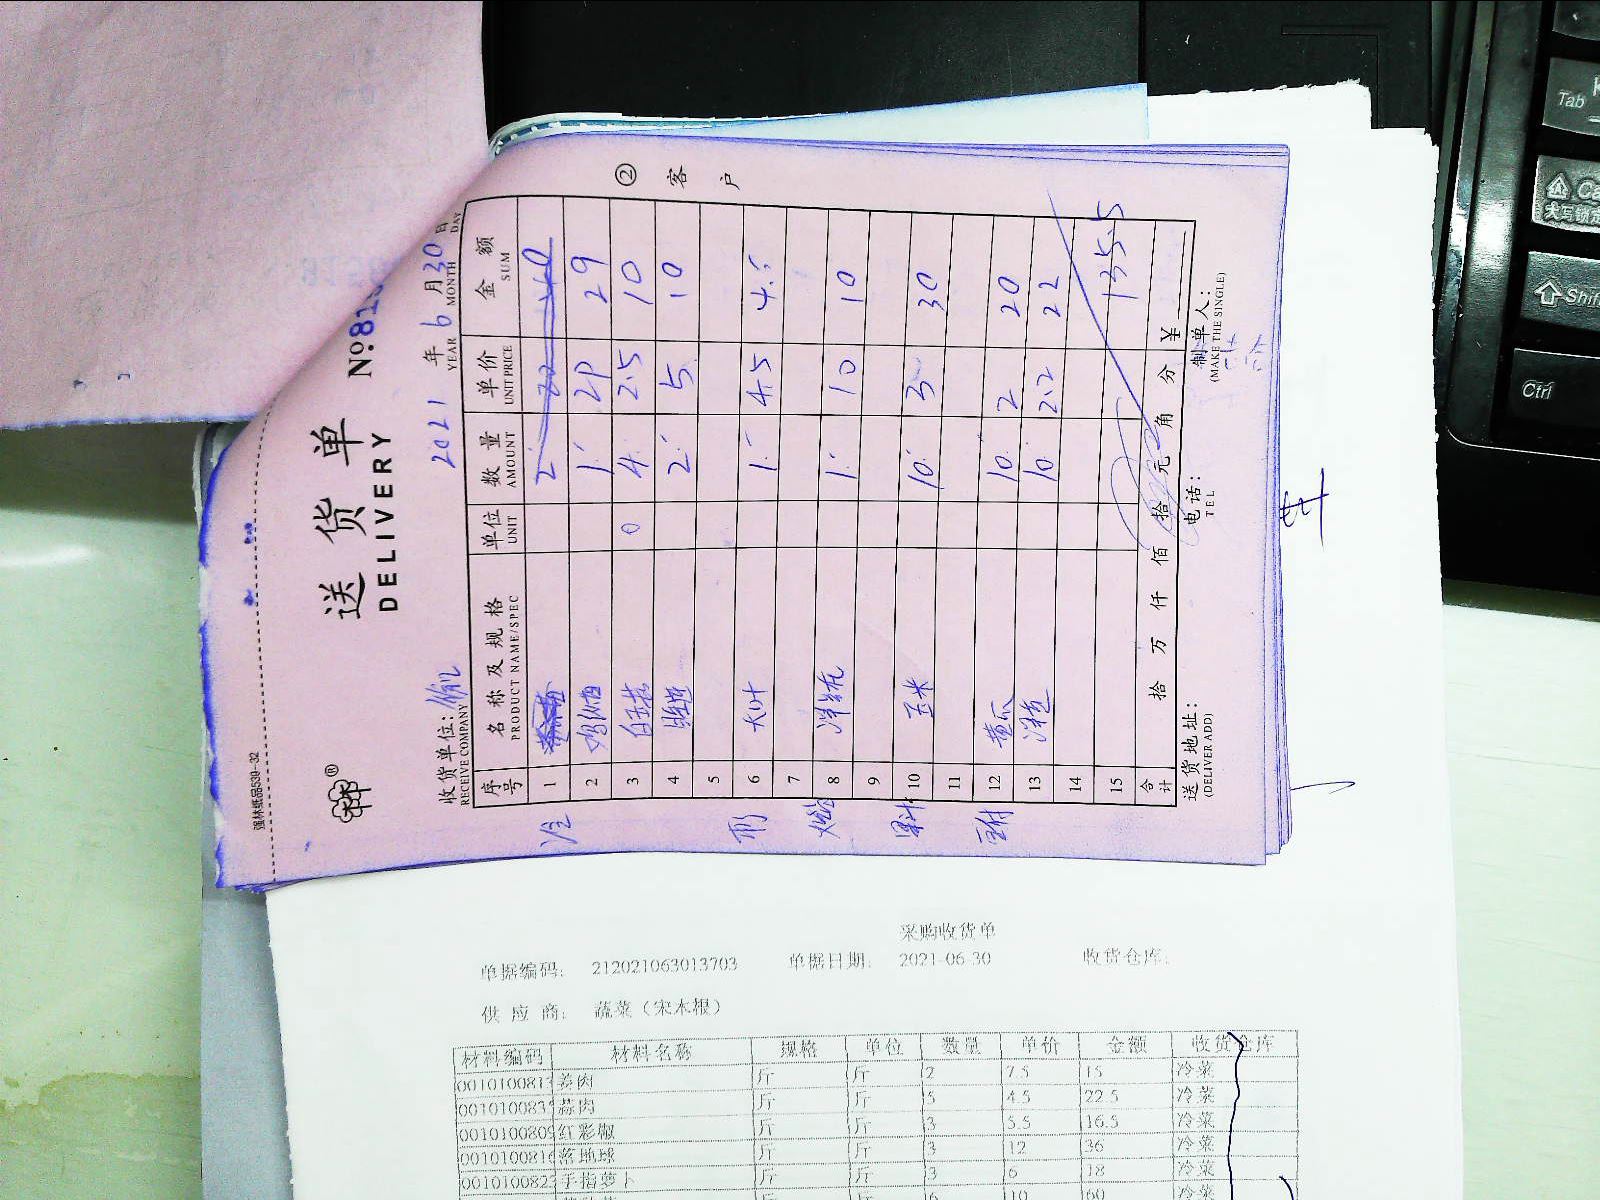 强林纸品539-32
送货单
DELIVERY
№:81
2021年6月30日
YEAR MONTH DAY
收货单位:
RECEIVE COMPANY
②客户
序号 名称及规格 单位 数量 单价 金额
PRODUCT NAME/SPEC UNIT AMOUNT UNIT PRICE SUM
1 2
2 1 29 29
3 白玉菇 4 2.5 10
4 2 5 10
5
6 大叶 1 4.5 4.5
7
8 1 10 10
9
10 玉米 10 3 30
11
12 黄瓜 10 2 20
13 洋葱 10 2.2 22
14
15 135.5
合计 拾 万 仟 佰 拾 元 角 分 ¥
送货地址:
(DELIVER ADD)
电话:
TEL
制单人:
(MAKE THE SINGLE)
采购收货单
单据编码: 212021063013703 单据日期: 2021-06-30 收货仓库:
供应商: 蔬菜（宋木根）
材料编码 材料名称 规格 单位 数量 单价 金额 收货仓库
001010081 姜肉 斤 斤 2 7.5 15 冷菜
001010083 蒜肉 斤 斤 5 4.5 22.5 冷菜
001010080 红彩椒 斤 斤 3 5.5 16.5 冷菜
001010081 落地球 斤 斤 3 12 36 冷菜
001010082 手指萝卜 斤 斤 3 6 18 冷菜
6 10 60 冷菜
Tab
Ca
大写锁定
Shif
Ctrl